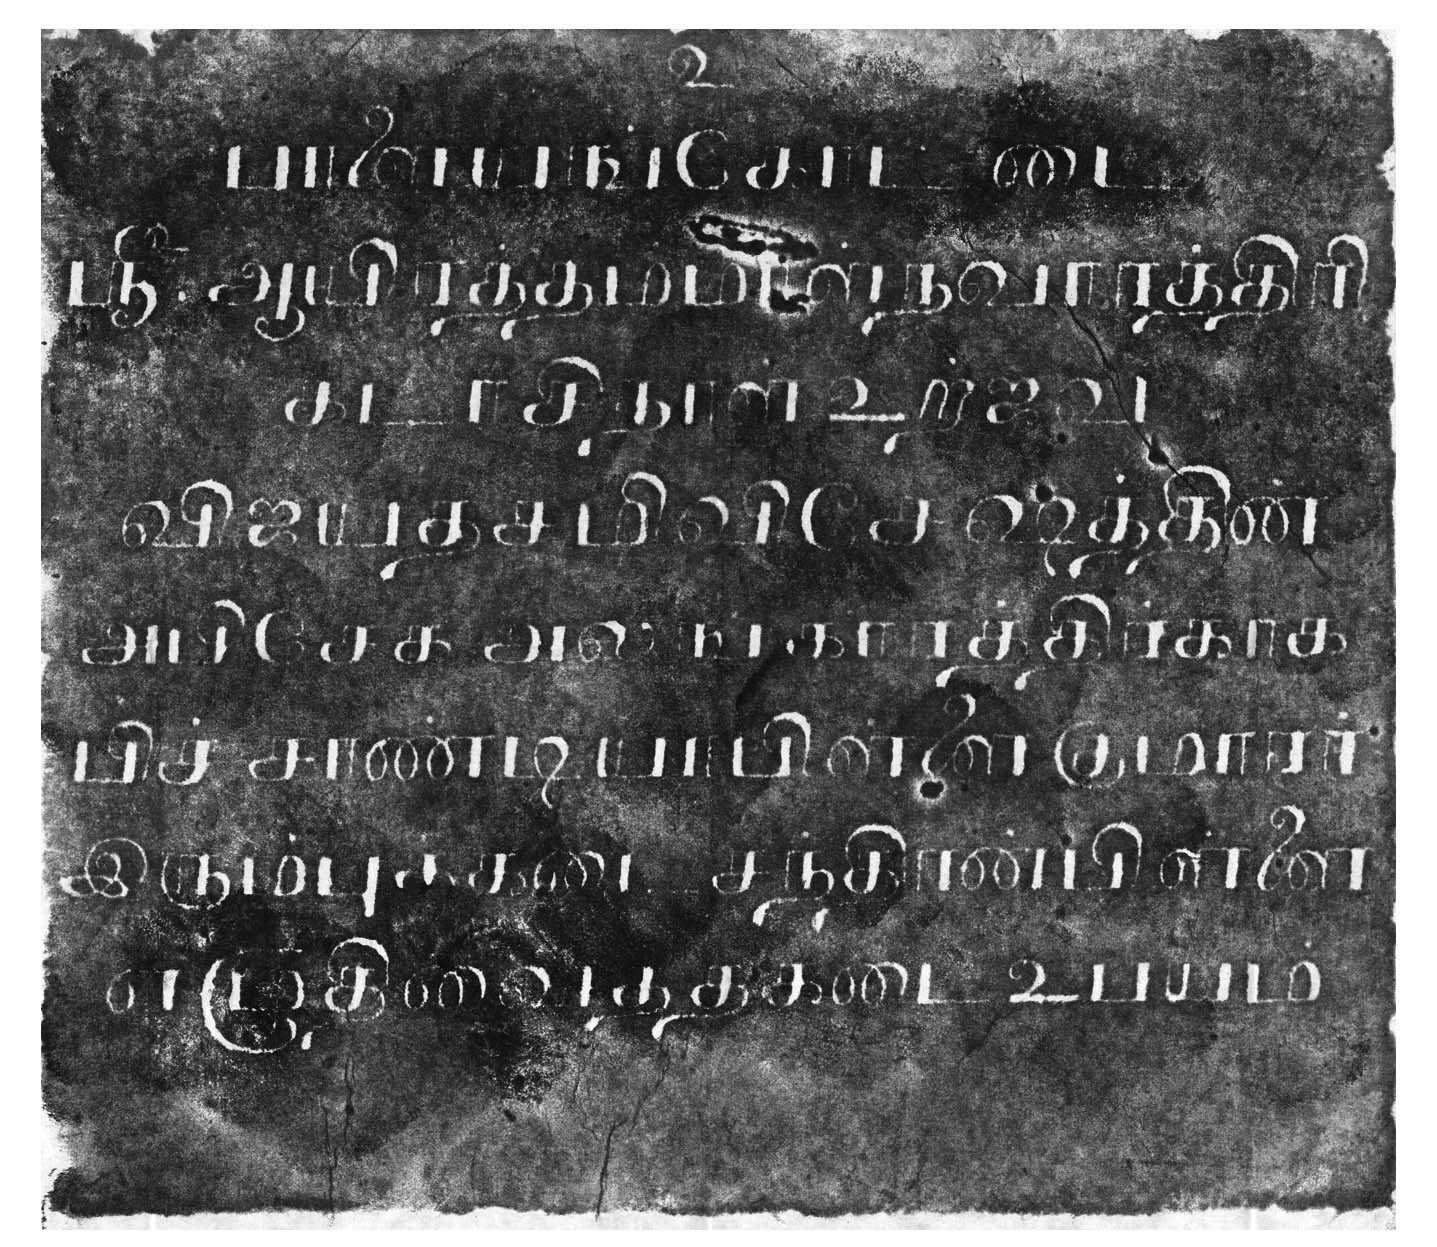 உ
பாளையங்கோட்டை
ஸ்ரீ ஆயிரத்தம்மாள் நவராத்திரி
கடாசி நாள் உற்ஜவ
விஜயதசமி விசேஷத்தின்
அபிசேக அலங்காரத்திர்காக
பிச்சாண்டியாபிள்ளை குமாரர்
இரும்புக்கடை சந்திரன்பிள்ளை
எழுதிவைத்தகடை உபயம்